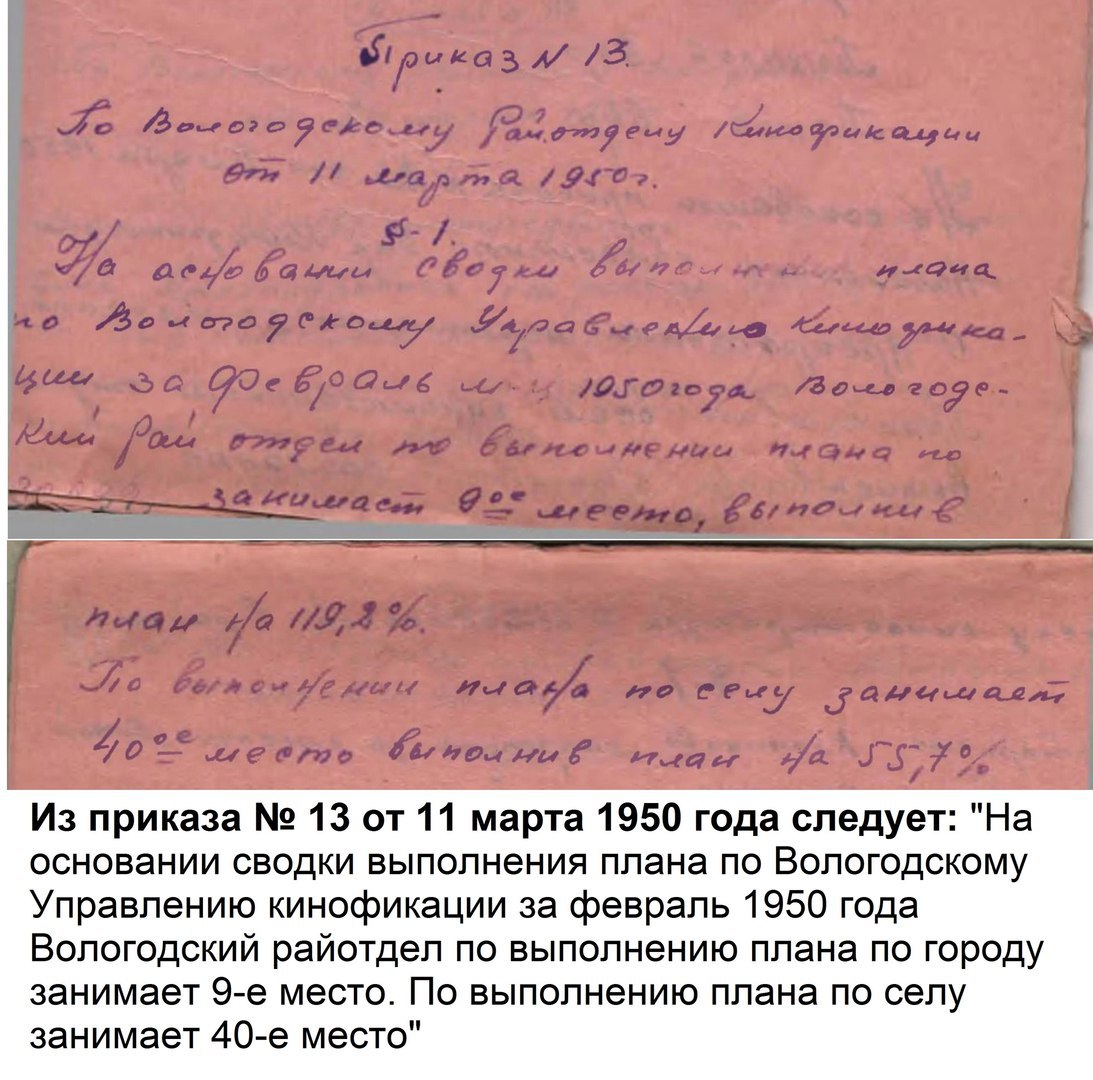 Приказ N 13.
По Вологодскому Райотделу Кинофикации
от 11 марта 1950г.
§-1.
На основании сводки выполнения плана
по Вологодскому Управлению Кинофика-
ции за февраль м-ц 1950 года Вологодс-
кий Рай отдел по выполнении плана по
занимает 9ое место, выполнив
план на 119,2%.
По выполнении плана по селу занимает
40ое место выполнив план на 55,7%
Из приказа № 13 от 11 марта 1950 года следует: "На
основании сводки выполнения плана по Вологодскому
Управлению кинофикации за февраль 1950 года
Вологодский райотдел по выполнению плана по городу
занимает 9-е место. По выполнению плана по селу
занимает 40-е место"